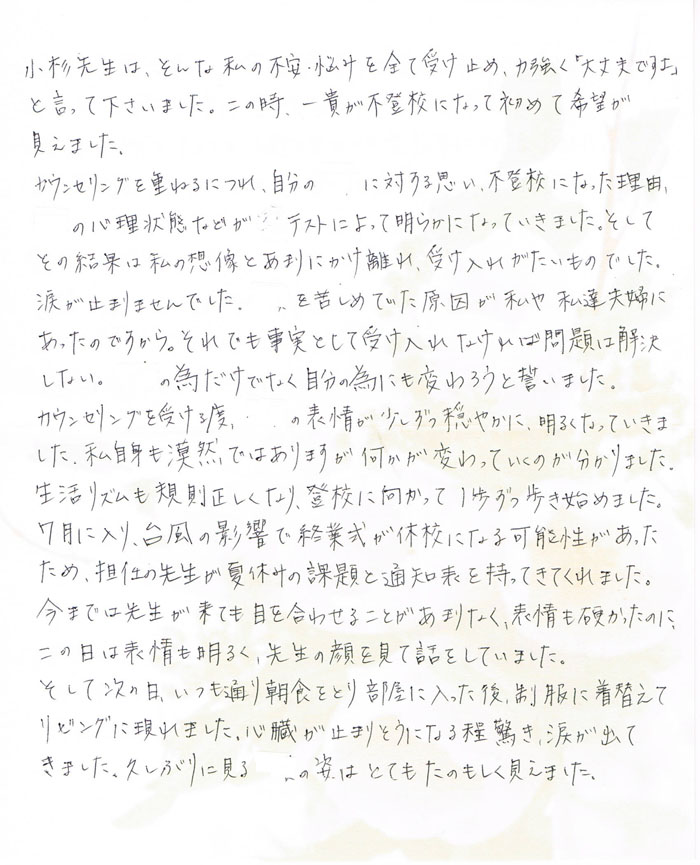 小杉先生は、そんな私の不安・悩みを全て受け止め、力強く「大丈夫ですよ」
と言って下さいました。この時、一貴が不登校になって初めて希望が
見えました。
カウンセリングを重ねるにつれ、自分の に対する思い、不登校になった理由、
の心理状態などが テストによって明らかになっていきました。そして
その結果は私の想像とあまりにかけ離れ、受け入れがたいものでした。
涙が止まりませんでした。 を苦しめていた原因が私や私達夫婦に
あったのですから。それでも事実として受け入れなければ問題は解決
しない。 の為だけでなく自分の為にも変わろうと誓いました。
カウンセリングを受ける度、 の表情が少しずつ穏やかに、明るくなっていきま
した。私自身も漠然ではありますが何かが変わっていくのが分かりました。
生活リズムも規則正しくなり、登校に向かって1歩ずつ歩き始めました。
7月に入り、台風の影響で終業式が休校になる可能性があった
ため、担任の先生が夏休みの課題と通知表を持ってきてくれました。
今までは先生が来ても目を合わせることがあまりなく、表情も硬かったのに、
この日は表情も明るく、先生の顔を見て話をしていました。
そして次の日、いつも通り朝食をとり部屋に入った後、制服に着替えて
リビングに現れました。心臓が止まりそうになる程驚き、涙が出て
きました。久しぶりに見る の姿はとてもたのもしく見えました。